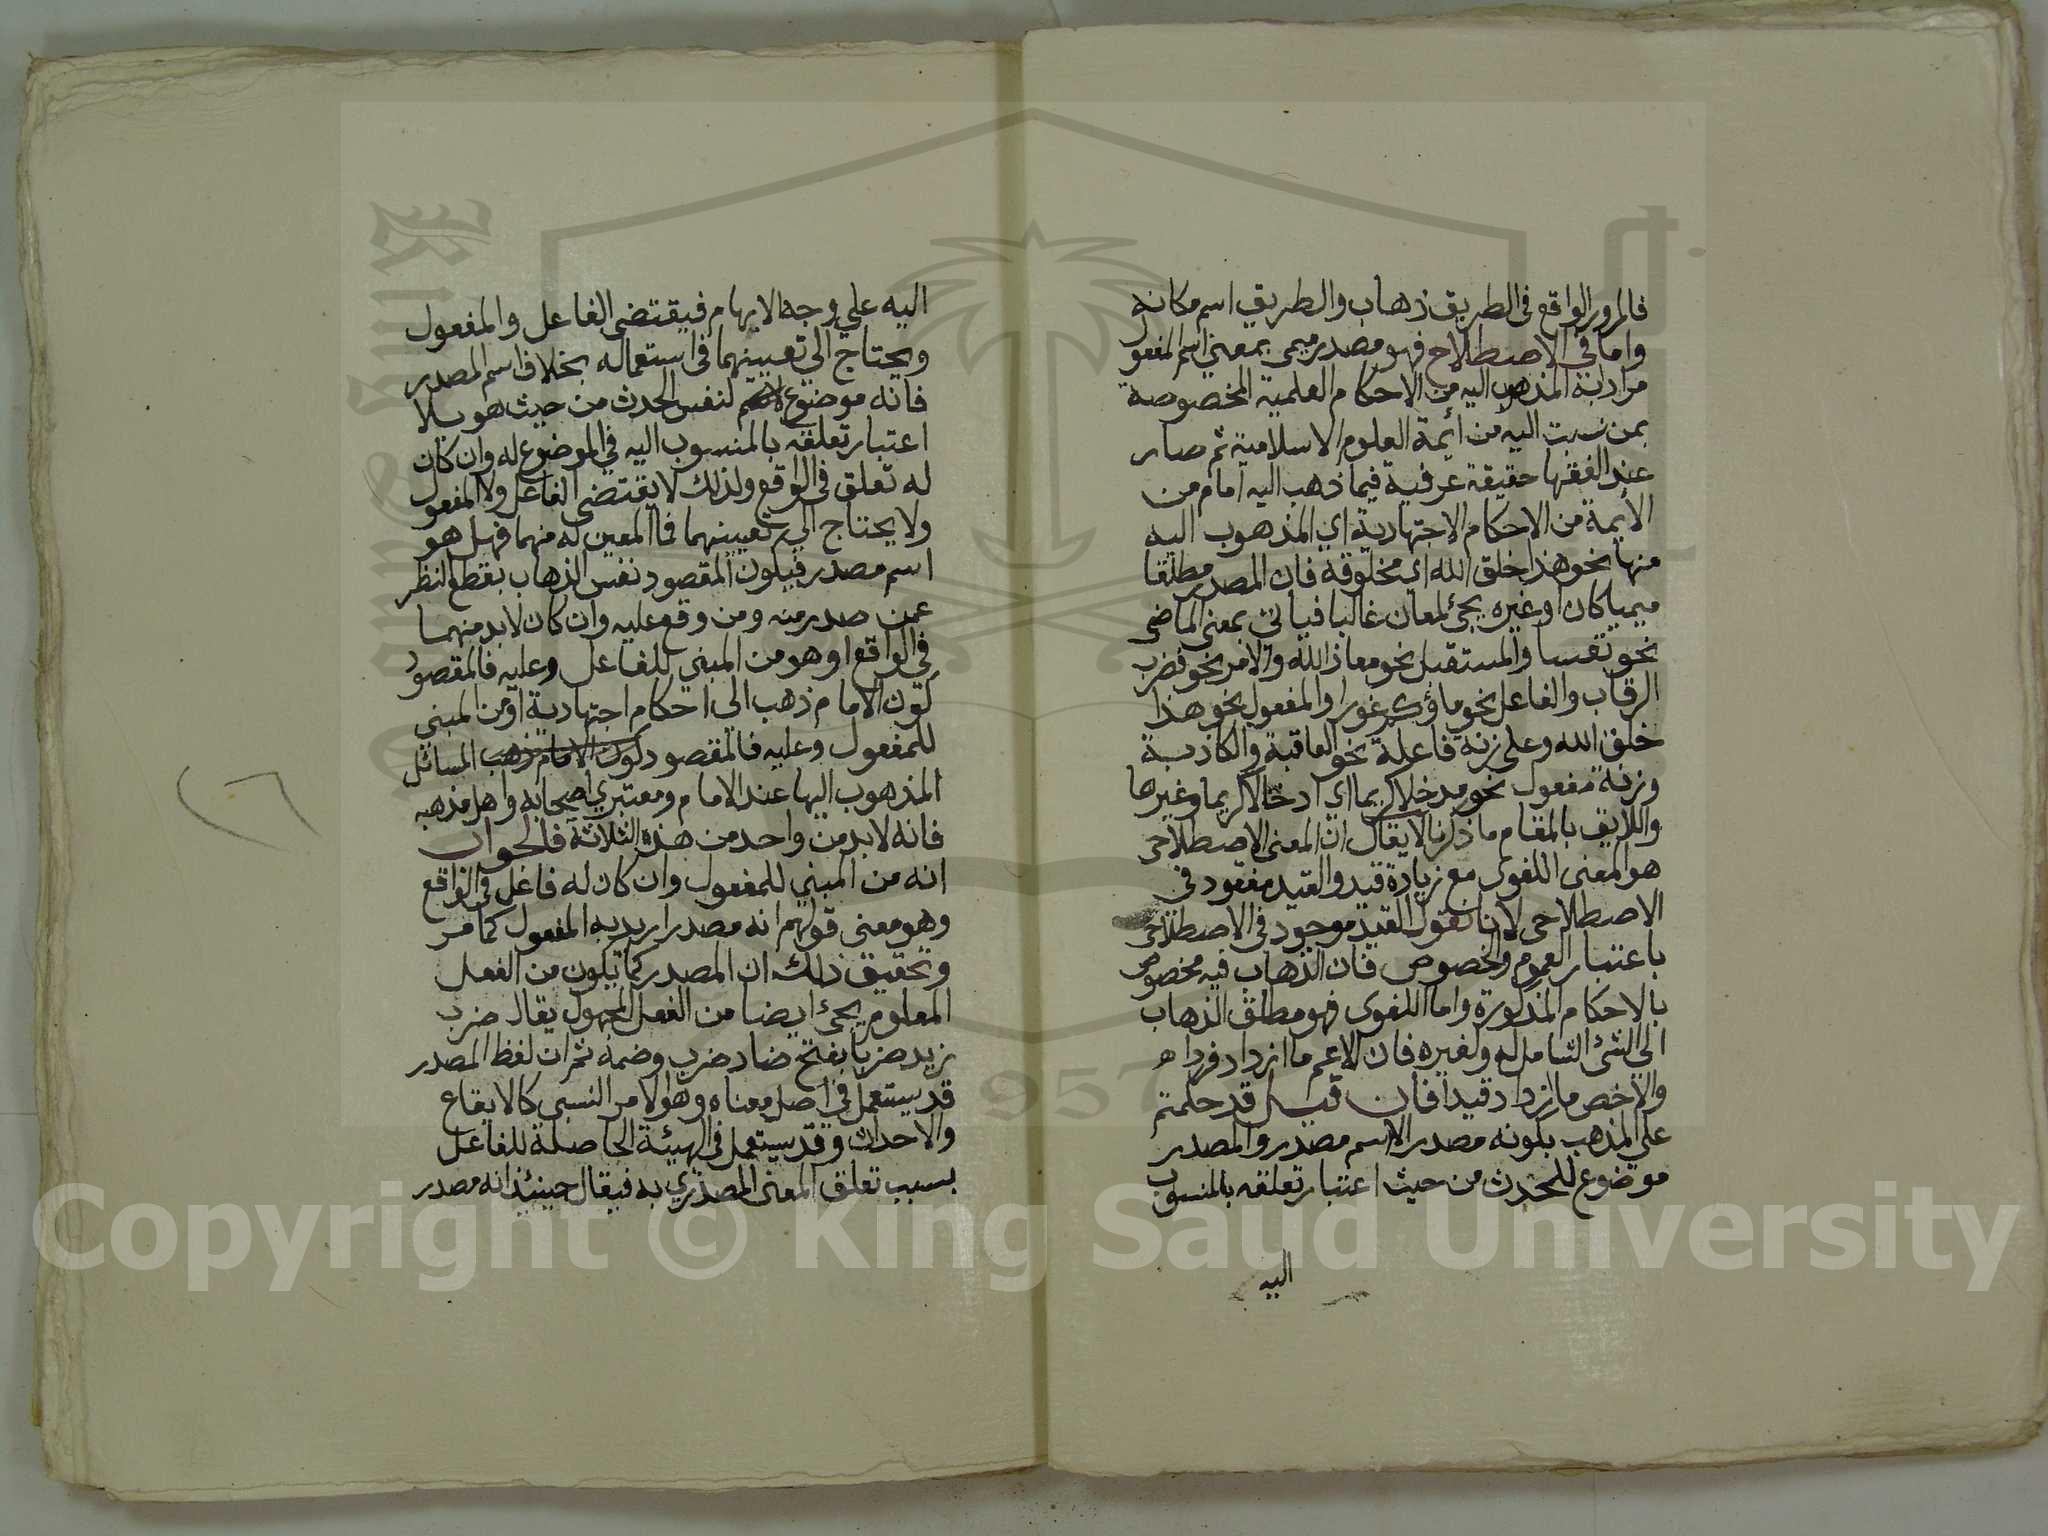 فالمرور الواقع فى الطريق ذهاب والطريق اسم مكانه
واما فى الاصطلاح فهو مصدر ميمى بمعنى اسم المفعول
مرادا به المذهوب اليه من الاحكام العلمية المخصوصة
بمن نسبت اليه من أيمة العلوم الاسلامية ثم صار
عند الفقها حقيقة عرفية فيما ذهب اليه امام من
الأيمة من الاحكام الاجتهادية اي المذهوب اليه
منها نحو هذا خلق الله اي مخلوقه فان المصدر مطلقا
ميميا كان او غيره يجئ لمعان غالبا فياتى بمعنى الماضى
نحو تعسا والمستقبل نحو معاذ الله والامر نحو فضرب
الرقاب والفاعل نحو ماؤكم غورا والمفعول نحو هذا
خلق الله وعلى زنة فاعلة نحو العاقبة والكاذبة
وزنة مفعول نحو مدخلا كريما اي ادخالا كريما وغيرها
واللايق بالمقام ما ذكرنا لا يقال ان المعنى الاصطلاحى
هو المعنى اللغوى مع زيادة قيد والقيد مفقود فى
الاصطلاحى لانا نقول القيد موجود فى الاصطلاحى
باعتبار العموم والخصوص فان الذهاب فيه مخصوص
بالاحكام المذكورة واما اللغوى فهو مطلق الذهاب
الى الشئ الشامل له ولغيره فان الاعم ما ازداد فردا
والاخص ما ازداد قيدا فان قيل قد حكمتم
على المذهب بكونه مصدرا لاسم مصدر والمصدر
موضوع للحدث من حيث اعتبار تعلقه بالمنسوب
اليه
اليه على وجه الابهام فيقتضى الفاعل والمفعول
ويحتاج الى تعيينهما فى استعماله بخلاف اسم المصدر
فانه موضوع لنفس الحدث من حيث هو بلا
اعتبار تعلقه بالمنسوب اليه في الموضوع له وان كان
له تعلق فى الواقع ولذلك لا يقتضى الفاعل ولا المفعول
ولا يحتاج الى تعيينهما فما المعين له منهما فهل هو
اسم مصدر فيكون المقصود نفس الذهاب بقطع النظر
عمن صدر منه ومن وقع عليه وان كان لابد منهما
في الواقع او هو من المبني للفاعل وعليه فالمقصود
كون الامام ذهب الى احكام اجتهادية او من المبنى
للمفعول وعليه فالمقصود كون الامام ذهب المسائل
المذهوب اليها عند الامام ومعتبري اصحابه واهل مذهبه
فانه لابد من واحد من هذه الثلاثة فالجواب
انه من المبني للمفعول وان كان له فاعل فى الواقع
وهو معنى قولهم انه مصدر اريد به المفعول كما مر
وتحقيق ذلك ان المصدر كما يكون من الفعل
المعلوم يجئ ايضا من الفعل المجهول يقال ضرب
زيد ضربا بفتح ضاد ضرب وضمه ثم ان لفظ المصدر
قد يستعمل فى اصل معناه وهو الامر النسبى كالايقاع
والاحداث وقد يستعمل فى الهيئة الحاصلة للفاعل
بسبب تعلق المعنى المصدري به فيقال حينئذ انه مصدر
Copyright © King Saud University
1957